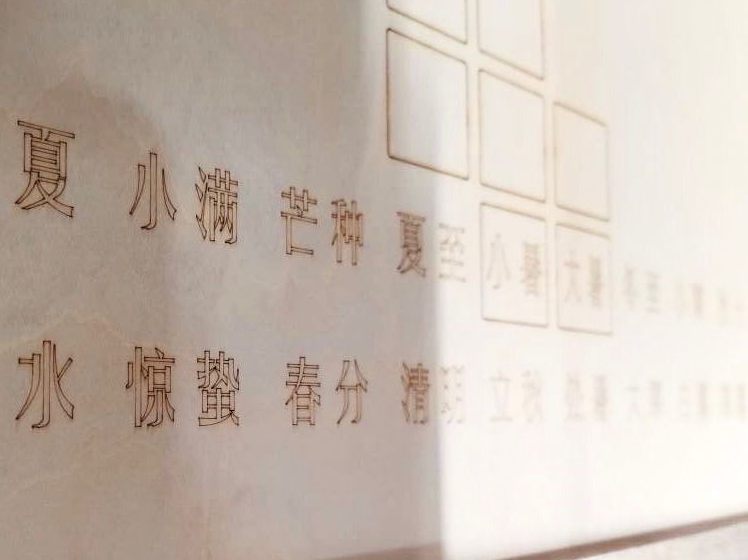 夏 小满 芒种 夏至 小暑 大暑
水 惊蛰 春分 清明 立秋 处暑